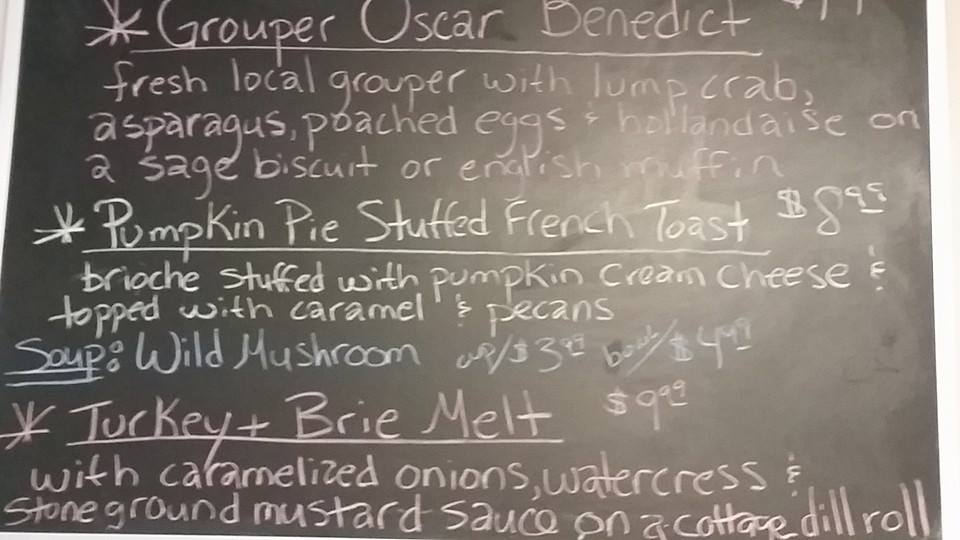 * Grouper Oscar Benedict
fresh local grouper with lump crab,
asparagus, poached eggs & hollandaise on
a sage biscuit or english muffin
* Pumpkin Pie Stuffed French Toast $8.99
brioche stuffed with pumpkin cream cheese &
topped with caramel & pecans
Soup: Wild Mushroom cup/$3.99 bowl/$4.99
* Turkey + Brie Melt $9.99
with caramelized onions, watercress &
stone ground mustard sauce on a cottage dill roll